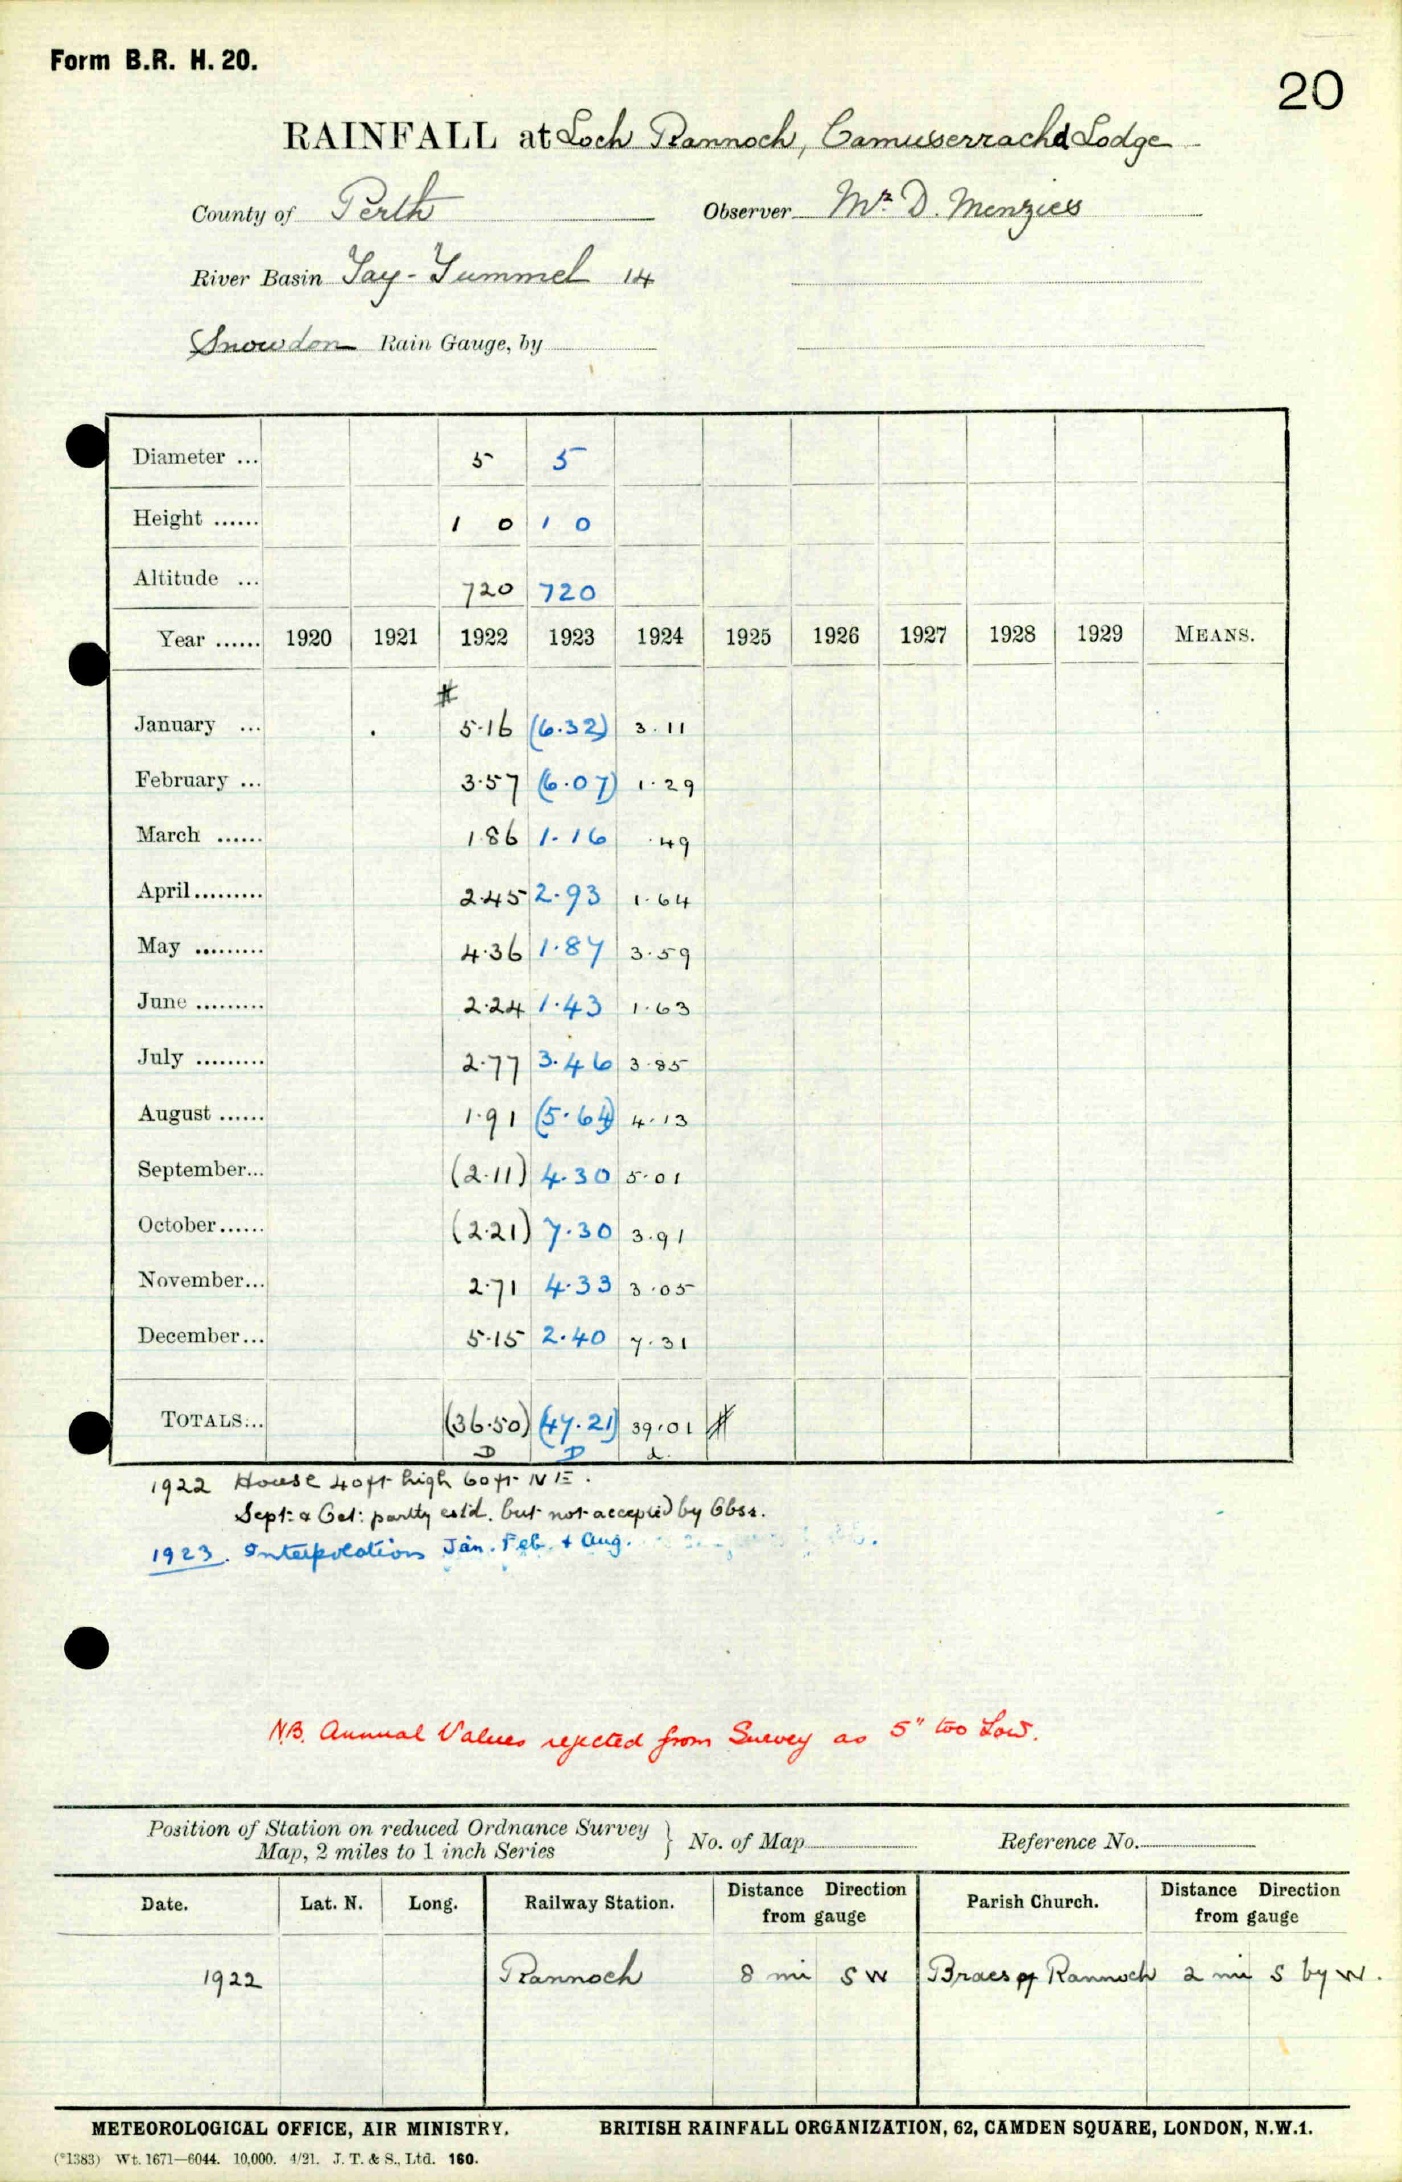 Form B.R. H. 20.
20
RAINFALL at Loch Rannoch, Camusserrachd Lodge
County of Perth Observer Mr. D. Menzies
River Basin Tay - Tummel 14
Snowdon Rain Gauge, by
Diameter ... 5 5
Height ...... 1 0 1 0
Altitude ... 720 720
Year ...... 1920 1921 1922 1923 1924 1925 1926 1927 1928 1929 MEANS.
#
January ... 5.16 (6.32) 3.11
February ... 3.57 (6.07) 1.29
March ...... 1.86 1.16 .49
April ......... 2.45 2.93 1.64
May ......... 4.36 1.87 3.59
June ......... 2.24 1.43 1.63
July ......... 2.77 3.46 3.85
August ...... 1.91 (5.64) 4.13
September... (2.11) 4.30 5.01
October...... (2.21) 7.30 3.91
November... 2.71 4.33 3.05
December... 5.15 2.40 7.31
TOTALS... (36.50) (47.21) 39.01 #
D D d.
1922 House 40ft high 60ft NE.
Sept: & Oct: partly estd. but not accepted by Obsr.
1923. Interpolation Jan. Feb. & Aug.
N.B. Annual Values rejected from Survey as 5" too Low.
Position of Station on reduced Ordnance Survey
Map, 2 miles to 1 inch Series } No. of Map Reference No.
Date. Lat. N. Long. Railway Station. Distance Direction from gauge Parish Church. Distance Direction from gauge
1922 Rannoch 8 mi SW Braes of Rannoch 2 mi S by W.
METEOROLOGICAL OFFICE, AIR MINISTRY. BRITISH RAINFALL ORGANIZATION, 62, CAMDEN SQUARE, LONDON, N.W.1.
(*1383) Wt. 1671—6044. 10,000. 4/21. J. T. & S., Ltd. 160.